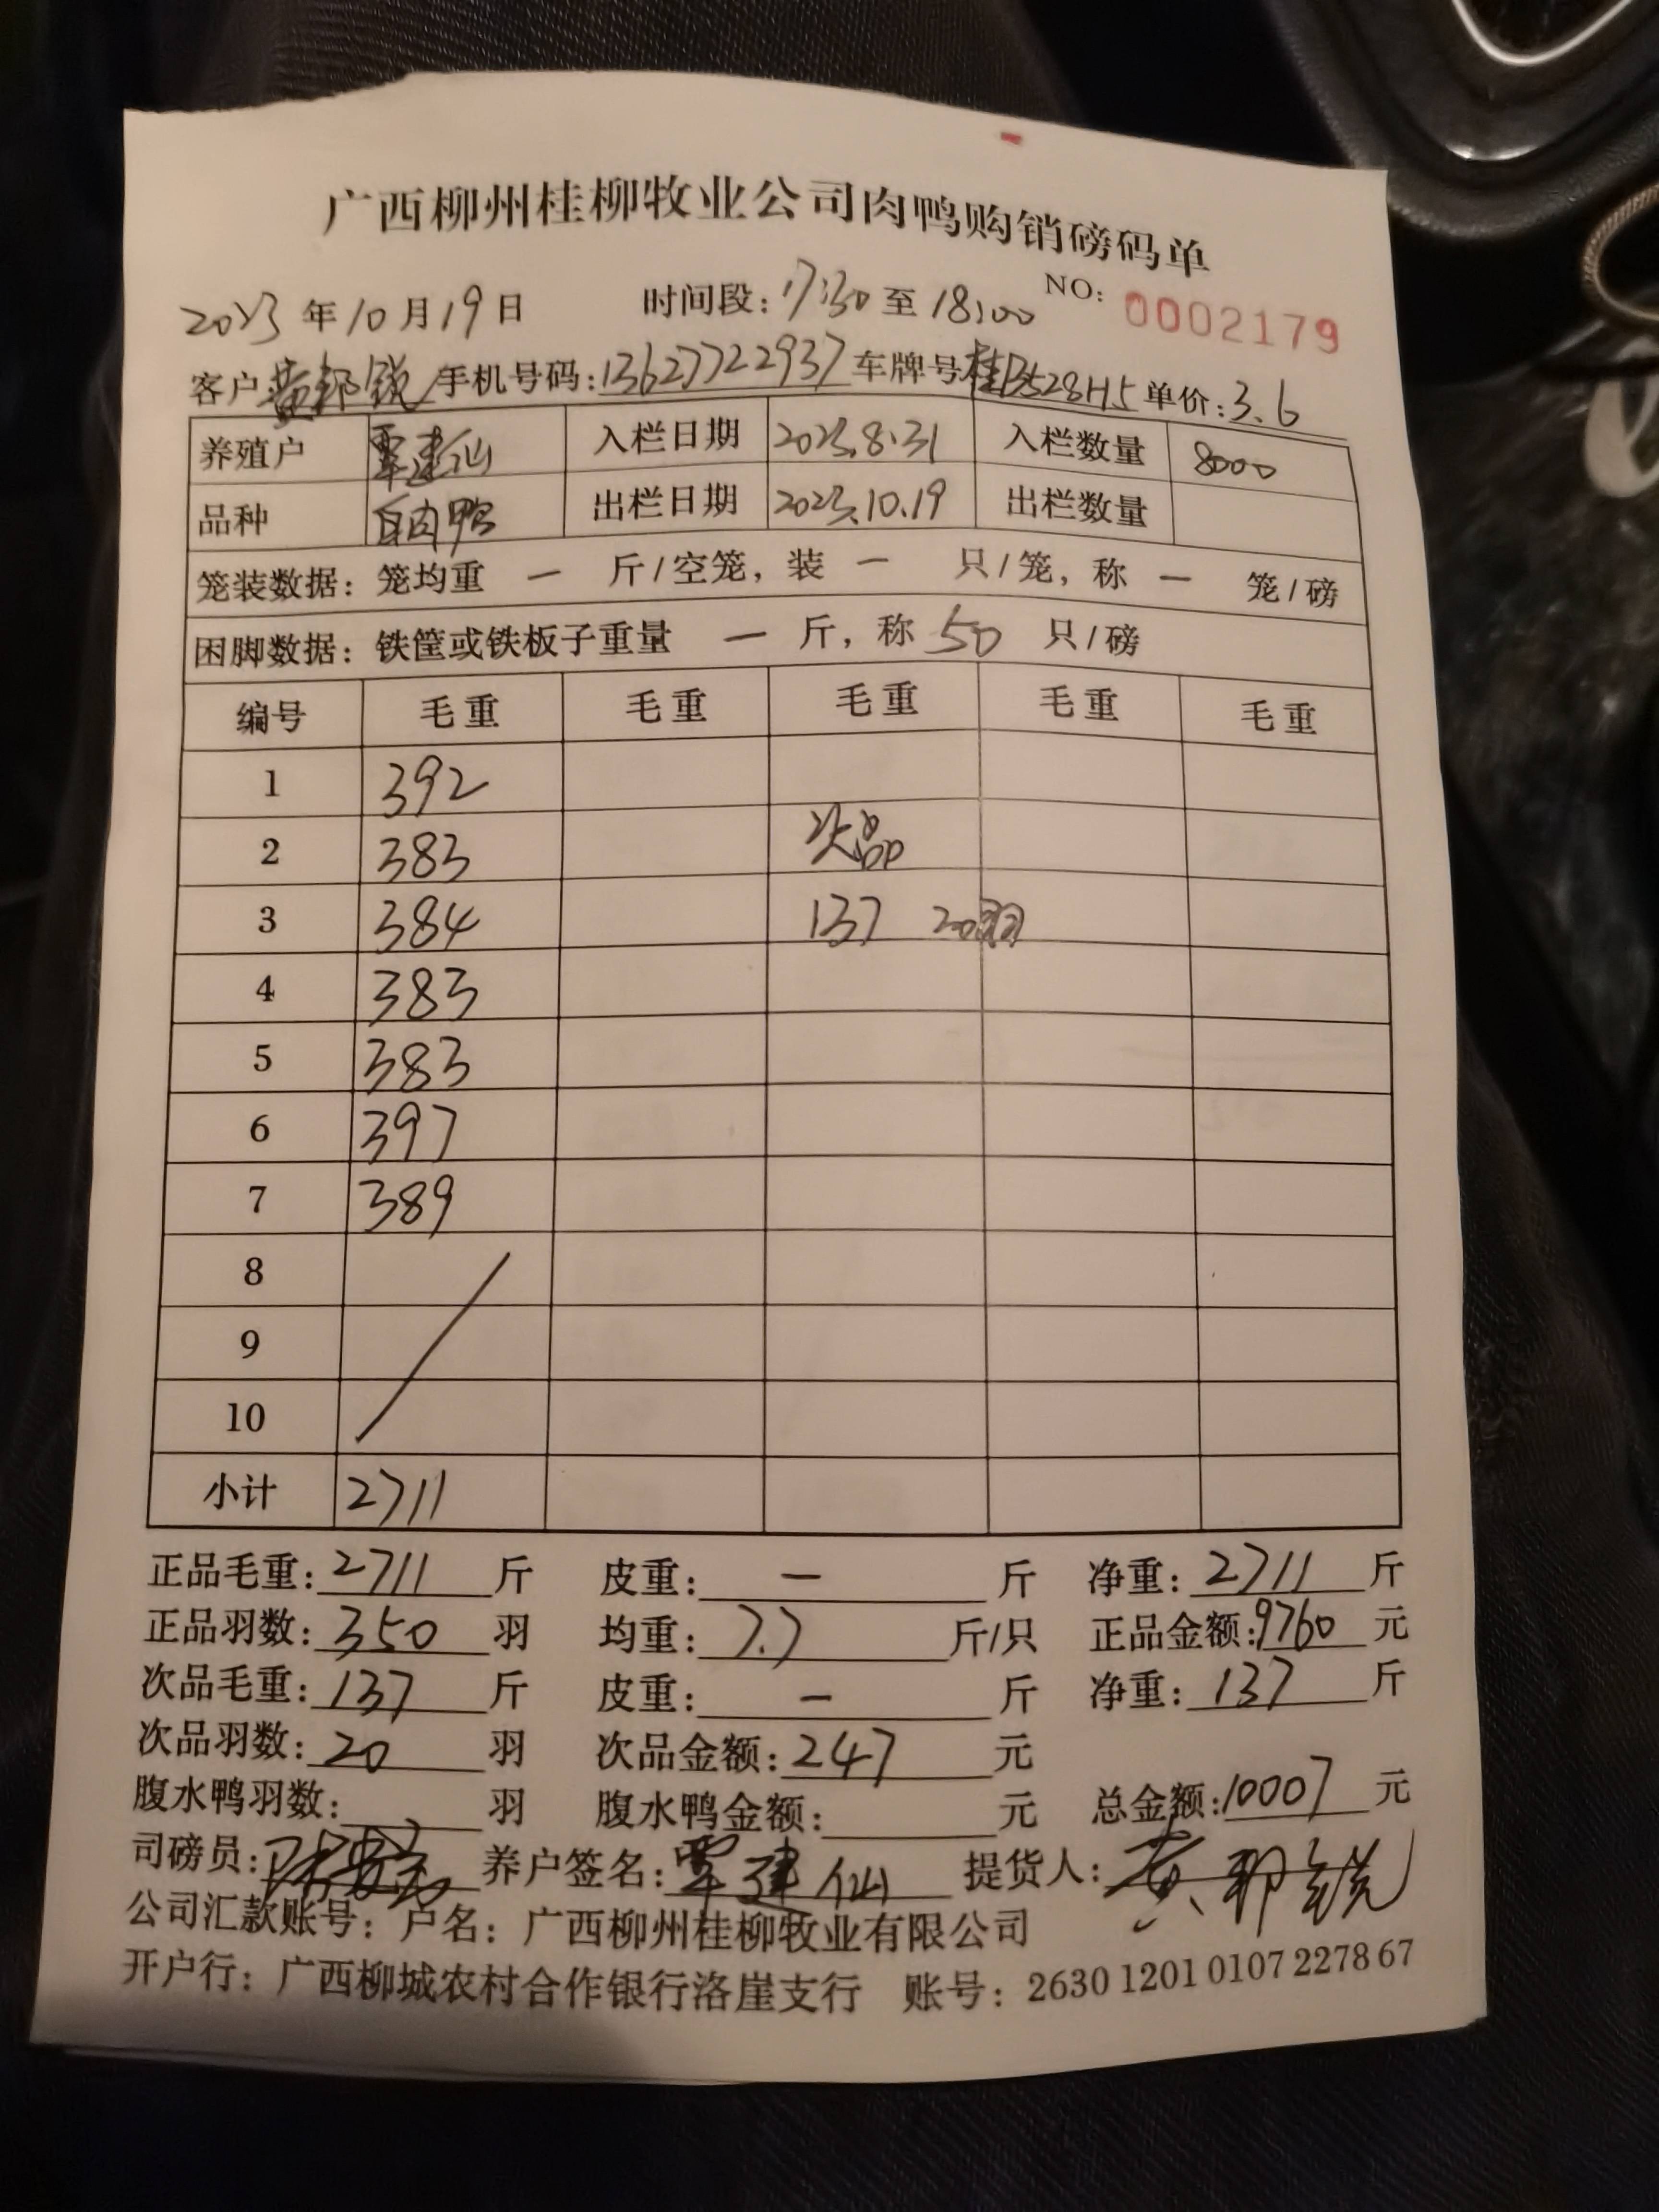 广西柳州桂柳牧业公司肉鸭购销磅码单
2023年10月19日 时间段:17:30至18:00 NO: 0002179
客户黄邦锐 手机号码:13627722937 车牌号桂B528H5 单价:3.6
养殖户 覃建仙 入栏日期 2023.8.31 入栏数量 8000
品种 白肉鸭 出栏日期 2023.10.19 出栏数量
笼装数据:笼均重 — 斤/空笼,装 — 只/笼,称 — 笼/磅
困脚数据:铁筐或铁板子重量 — 斤,称 50 只/磅
编号 毛重 毛重 毛重 毛重 毛重
1 392
2 383 次品
3 384 137 20羽
4 383
5 383
6 397
7 389
8
9
10
小计 2711
正品毛重:2711斤 皮重:—斤 净重:2711斤
正品羽数:350羽 均重:7.7斤/只 正品金额:9760元
次品毛重:137斤 皮重:—斤 净重:137斤
次品羽数:20羽 次品金额:247元
腹水鸭羽数: 羽 腹水鸭金额: 元 总金额:10007元
司磅员: 养户签名:覃建仙 提货人:黄邦锐
公司汇款账号:户名:广西柳州桂柳牧业有限公司
开户行:广西柳城农村合作银行洛崖支行 账号:2630 1201 0107 2278 67